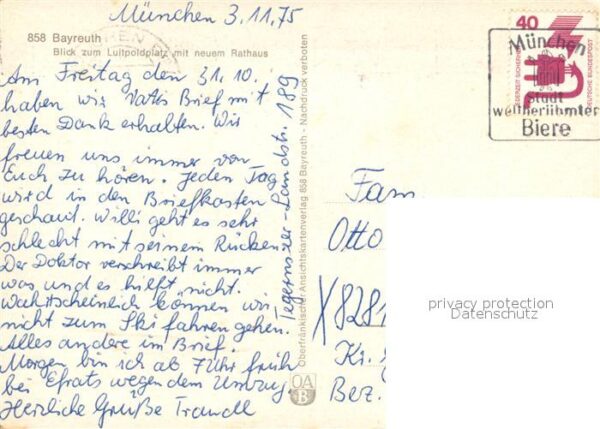 München 3.11.75
858 Bayreuth
Blick zum Luitpoldplatz mit neuem Rathaus
Am Freitag den 31.10.
haben wir Vatis Brief mit
besten Dank erhalten. Wir
freuen uns immer von
Euch zu hören. Jeden Tag
wird in den Briefkasten
geschaut. Willi geht es sehr
schlecht mit seinem Rücken.
Der Doktor verschreibt immer
was und es hilft nicht.
Wahrtscheinlich können wir
nicht zum Ski fahren gehen.
Alles andere im Brief.
Morgen bin ich ab 7 Uhr früh
bei Efrats wegen dem Umzug.
Herzliche Grüße Traudl
Tegernseer-Landstr. 189
Oberfränkischer Ansichtskartenverlag 858 Bayreuth - Nachdruck verboten
OA
B
40
DEUTSCHE BUNDESPOST
München
Stadt
weltberühmter
Biere
Fam.
Otto
X8281
Kr.
Bez.
privacy protection
Datenschutz